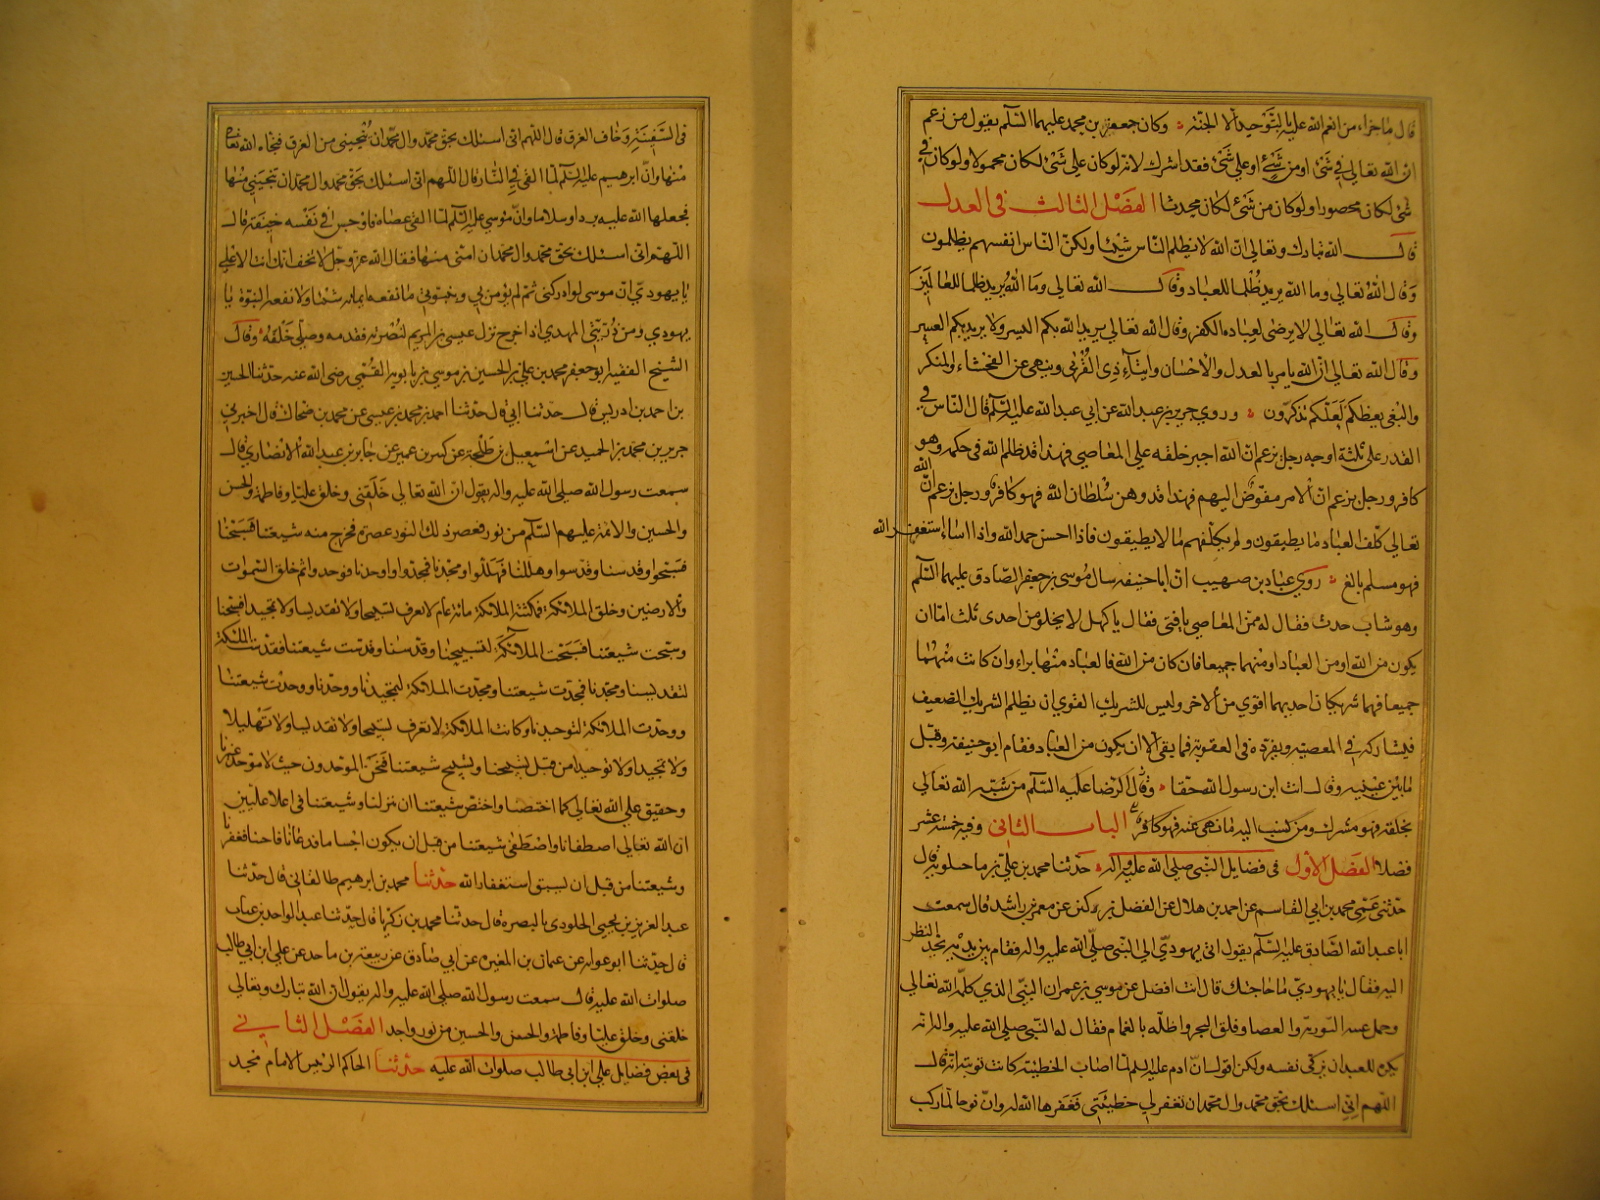 قال ما جزاء من انعم الله عليه بالتوحيد الا الجنة وكان جعفر بن محمد عليهما السلم يقول من زعم
ان الله تعالى في شئ او من شئ او على شئ فقد اشرك لانه لو كان على شئ لكان محمولا ولو كان في
شئ لكان محصورا ولو كان من شئ لكان محدثا الفصل الثالث في العدل
قال الله تبارك وتعالى ان الله لا يظلم الناس شيئا ولكن الناس انفسهم يظلمون
وقال الله تعالى وما الله يريد ظلما للعباد وقال الله تعالى وما الله يريد ظلما للعالمين
وقال الله تعالى لا يرضى لعباده الكفر وقال الله تعالى يريد الله بكم اليسر ولا يريد بكم العسر
وقال الله تعالى ان الله يامر بالعدل والاحسان وايتاء ذي القربى وينهى عن الفحشاء والمنكر
والبغي يعظكم لعلكم تذكرون وروي جرير بن عبد الله عن ابي عبد الله عليه السلم قال الناس في
القدر على ثلثة اوجه رجل يزعم ان الله اجبر خلقه على المعاصي فهذا قد ظلم الله في حكمه وهو
كافر ورجل يزعم ان الامر مفوض اليهم فهذا قد وهن سلطان الله فهو كافر ورجل يزعم ان الله
تعالى كلف العباد ما يطيقون ولم يكلفهم ما لا يطيقون فاذا احسن حمد الله واذا اساء استغفر الله
فهو مسلم بالغ روي عباد بن صهيب ان ابا حنيفه سال موسى بن جعفر الصادق عليهما السلم
وهو شاب حدث فقال له ممن المعاصي يا فتى فقال يا كهل لا يخلو من احدى ثلث اما ان
يكون من الله او من العباد او منهما جميعا فان كان من الله فالعباد منها براء وان كانت منهما
جميعا فهما شريكان احديهما اقوي من الاخر وليس للشريك القوي ان يظلم الشريك الضعيف
فيشاركه في المعصيه ويفرده في العقوبة فما بقى الا ان يكون من العباد فقام ابو حنيفة وقبل
ما بين عينيه وقال انت ابن رسول الله حقا وقال الرضا عليه السلم من شبه الله تعالى
بخلقه فهو مشرك ومن نسب اليه ما نهى عنه فهو كافر الباب الثاني وفيه خمسة عشر
فصلا الفصل الاول في فضايل النبي صلى الله عليه واله حدثنا محمد بن علي بن ماجلويه قال
حدثني عمي محمد بن ابي القاسم عن احمد بن هلال عن الفضل بن دكين عن معمر بن راشد قال سمعت
ابا عبد الله الصادق عليه السلم يقول اتى يهودي الى النبي صلى الله عليه واله فقام بين يديه يحد النظر
اليه فقال يا يهودي ما حاجتك قال انت افضل عن موسى بن عمران النبي الذي كلمه الله تعالى
عليه التورية والعصا وفلق البحر واظله بالغمام فقال له النبي صلى الله عليه واله انه
يكره للعبد ان يزكي نفسه ولكن اقول ان ادم عليه السلم لما اصاب الخطيئة كانت توبته انه قال
اللهم اني اسئلك بحق محمد وال محمد ان تغفر لي خطيئتي فغفرها الله له وان نوحا لما ركب
في السفينة وخاف الغرق قال اللهم اني اسئلك بحق محمد وال محمد ان تنجيني من الغرق فنجاه الله تعالى
منها وان ابرهيم عليه السلم لما القي في النار قال اللهم اني اسئلك بحق محمد وال محمد ان تنجيني منها
فجعلها الله عليه بردا وسلاما وان موسى عليه السلم لما القى عصاه فاوجس في نفسه خيفة قال
اللهم اني اسئلك بحق محمد وال محمد ان امنتني منها فقال الله عز وجل لا تخف انك انت الاعلى
يا يهودي ان موسى لو ادركني ثم لم يؤمن بي وبنبوتي ما نفعه ايمانه شيئا ولا نفعه النبوة يا
يهودي ومن ذريتي المهدي اذا خرج نزل عيسى بن المريم لنصرته فقدمه وصلى خلفه وقال
الشيخ الفقيه ابو جعفر محمد بن علي بن الحسين بن موسى بن بابويه القمي رضى الله عنه حدثنا الحسين
بن احمد بن ادريس قال حدثنا ابي قال حدثنا احمد بن محمد بن عيسى عن محمد بن ضحاك قال اخبرني
جرير بن محمد بن الحميد عن اسمعيل بن طلحة عن كسر بن عمير عن جابر بن عبد الله الانصاري قال
سمعت رسول الله صلى الله عليه واله يقول ان الله تعالى خلقني وخلق عليا وفاطمة والحسن
والحسين والائمة عليهم السلم من نور فعصر ذلك النور عصره فخرج منه شيعتنا فسبحنا
فسبحوا وقدسنا وقدسوا وهللنا فهللوا ومجدنا فمجدوا ووحدنا فوحدوا ثم خلق السموات
والارضين وخلق الملائكة فمكثت الملائكة مائة عام لا تعرف تسبيحا ولا تقديسا ولا تمجيدا فسبحنا
وسبحت شيعتنا فسبحت الملائكة لتسبيحنا وقدسنا وقدست شيعتنا فقدست الملئكة
لتقديسنا ومجدنا فمجدت شيعتنا ومجدت الملائكة لتمجيدنا ووحدنا ووحدت شيعتنا
ووحدت الملائكة لتوحيدنا وكانت الملائكة لا تعرف تسبيحا ولا تقديسا ولا تهليلا
ولا تمجيدا ولا توحيدا من قبل تسبيحنا وتسبيح شيعتنا فنحن الموحدون حيث لا موحد غيرنا
وحقيق على الله تعالى كما اختصنا واختص شيعتنا ان ننزلنا وشيعتنا في اعلا عليين
ان الله تعالى اصطفانا واصطفى شيعتنا من قبل ان يكون اجساما فدعانا فاجبنا فغفر لنا
وشيعتنا من قبل ان نسبق استغفار الله حدثنا محمد بن ابرهيم طالقاني قال حدثنا
عبد العزيز بن يحيى الجلودي بالبصره قال حدثنا محمد بن زكريا قال حدثنا عبد الواحد بن غياث
قال حدثنا ابو عوانه عن عثمان بن المغيره عن ابي صادق عن ربيعة بن ماجد عن علي ابن ابي طالب
صلوات الله عليه قال سمعت رسول الله صلى الله عليه واله يقول ان الله تبارك وتعالى
خلقني وخلق عليا وفاطمة والحسن والحسين من نور واحد الفصل الثاني
في بعض فضايل علي ابن ابي طالب صلوات الله عليه حدثنا الحاكم الرئيس الامام مجد